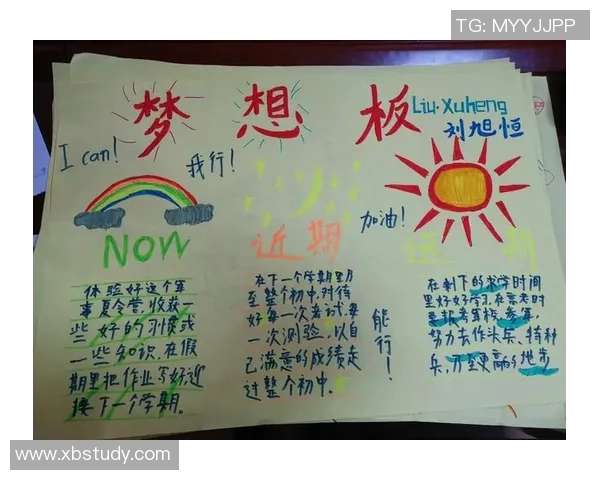 TG: MYYJJPP
梦想板
Liu·Xuheng
刘旭恒
I can!
我行!
加油!
NOW
近期
远期
体验好这个军
事夏令营,收获一
些好的习惯或
一些知识,在假
期里把作业写好,迎
接下一个学期。
在下一个学期里乃
至整个初中,对待
好每一次考试,每
一次测验,以自
己满意的成绩走
过整个初中。
能行!
在剩下的求学时间
里好好学习,在高考时
报考军校,参军,
努力去作头兵,特种
兵,乃至更高的地步
www.xbstudy.com